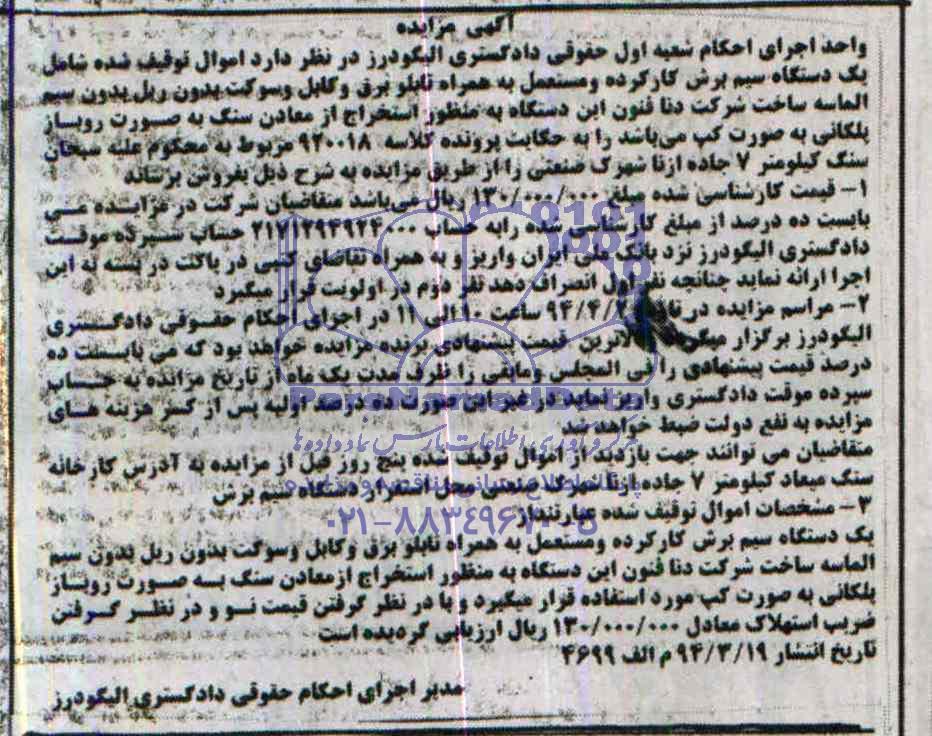 آگهی مزایده
واحد اجرای احکام شعبه اول حقوقی دادگستری الیگودرز در نظر دارد اموال توقیف شده شامل
یک دستگاه سیم برش کارکرده ومستعمل به همراه تابلو برق وکابل وسوکت بدون ریل بدون سیم
الماسه ساخت شرکت دنا فنون این دستگاه به منظور استخراج از معادن سنگ به صورت روباز
پلکانی به صورت کپ می‌باشد را به حکایت پرونده کلاسه ۹۲۰۰۱۸ مربوط به محکوم علیه سبحان
سنگ کیلومتر ۷ جاده ازنا شهرک صنعتی را از طریق مزایده به شرح ذیل بفروش برساند
۱- قیمت کارشناسی شده مبلغ ۱۳۰/۰۰۰/۰۰۰ ریال می‌باشد متقاضیان شرکت در مزایده می
بایست ده درصد از مبلغ کارشناسی شده رابه حساب ۲۱۷۱۲۹۴۹۲۴۰۰۰ حساب سپرده موقت
دادگستری الیگودرز نزد بانک ملی ایران واریز و به همراه تقاضای کتبی در پاکت در بسته به این
اجرا ارائه نماید چنانچه نفر اول انصراف دهد نفر دوم در اولویت قرار میگیرد
۲- مراسم مزایده در ۹۴/۴/ ساعت ۱۰ الی ۱۱ در اجرای احکام حقوقی دادگستری
الیگودرز برگزار قیمت پیشنهادی برنده مزایده خواهد بود که می بایست ده
درصد قیمت پیشنهادی را فی المجلس ومابقی را ظرف مدت یک ماه از تاریخ مزایده به حساب
سپرده موقت دادگستری واریز نماید در غیر این صورت ده درصد اولیه پس از کسر هزینه های
مزایده به نفع دولت ضبط خواهد شد
متقاضیان می توانند جهت بازدید از اموال توقیف شده پنج روز قبل از مزایده به آدرس کارخانه
سنگ میعاد کیلومتر ۷ جاده ازنا شهرک صنعتی محل استقرار دستگاه سیم برش
۳- مشخصات اموال توقیف شده عبارتند از
یک دستگاه سیم برش کارکرده ومستعمل به همراه تابلو برق وکابل وسوکت بدون ریل بدون سیم
الماسه ساخت شرکت دنا فنون این دستگاه به منظور استخراج ازمعادن سنگ به صورت روباز
پلکانی به صورت کپ مورد استفاده قرار میگیرد و با در نظر گرفتن قیمت نو و در نظر گرفتن
ضریب استهلاک معادل ۱۳۰/۰۰۰/۰۰۰ ریال ارزیابی گردیده است
تاریخ انتشار ۹۴/۳/۱۹ م الف ۴۶۹۹
مدیر اجرای احکام حقوقی دادگستری الیگودرز
ParsNamadData